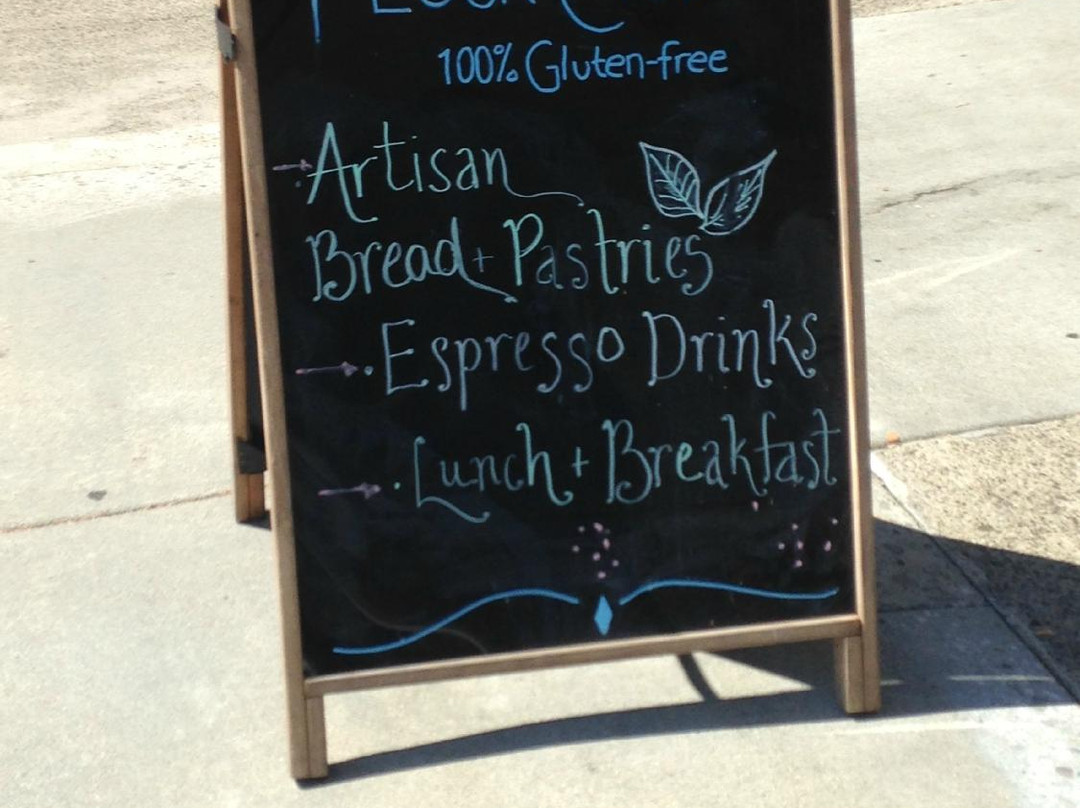 100% Gluten-free
Artisan
Bread + Pastries
Espresso Drinks
Lunch + Breakfast